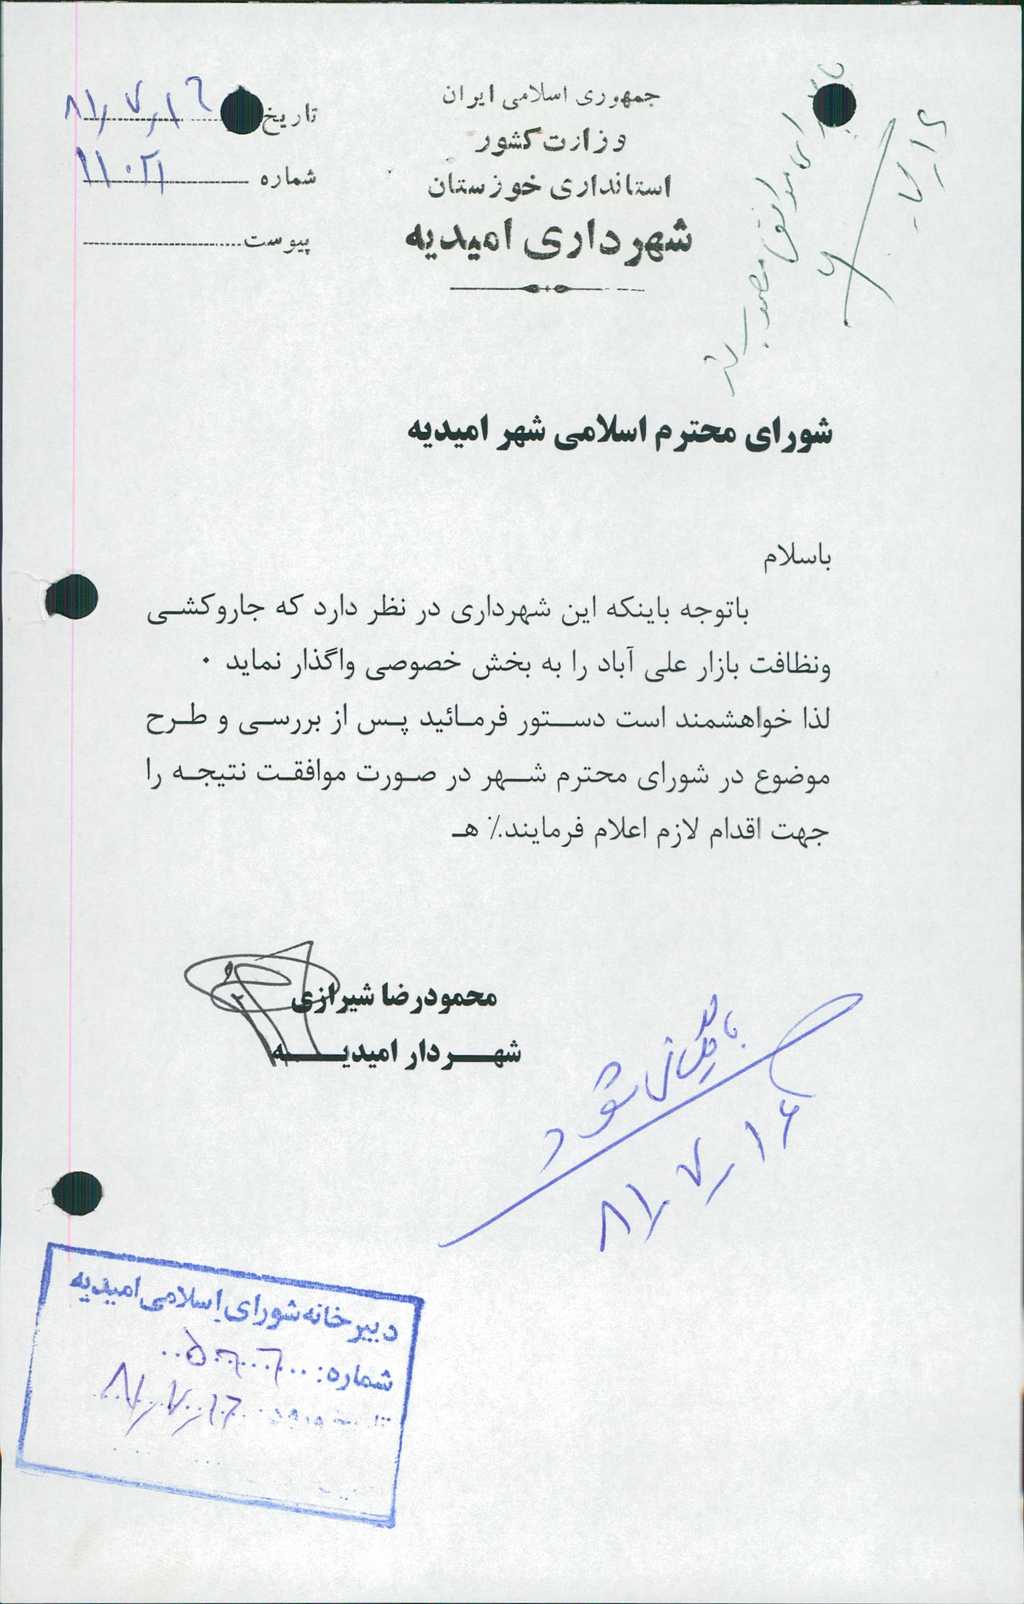 جمهوری اسلامی ایران
وزارت کشور
استانداری خوزستان
شهرداری امیدیه
تاریخ ۸۱/۷/۱۶
شماره ۱۱۰۲۱
پیوست
موافق
شورای محترم اسلامی شهر امیدیه
باسلام
باتوجه باینکه این شهرداری در نظر دارد که جاروکشی
ونظافت بازار علی آباد را به بخش خصوصی واگذار نماید ۰
لذا خواهشمند است دستور فرمائید پس از بررسی و طرح
موضوع در شورای محترم شهر در صورت موافقت نتیجه را
جهت اقدام لازم اعلام فرمایند٪ هـ
محمودرضا شیرازی
شهردار امیدیه
بایگانی شود
۸۱/۷/۱۶
دبیرخانه شورای اسلامی امیدیه
شماره:
تاریخ ورود: ۸۱/۷/۱۶